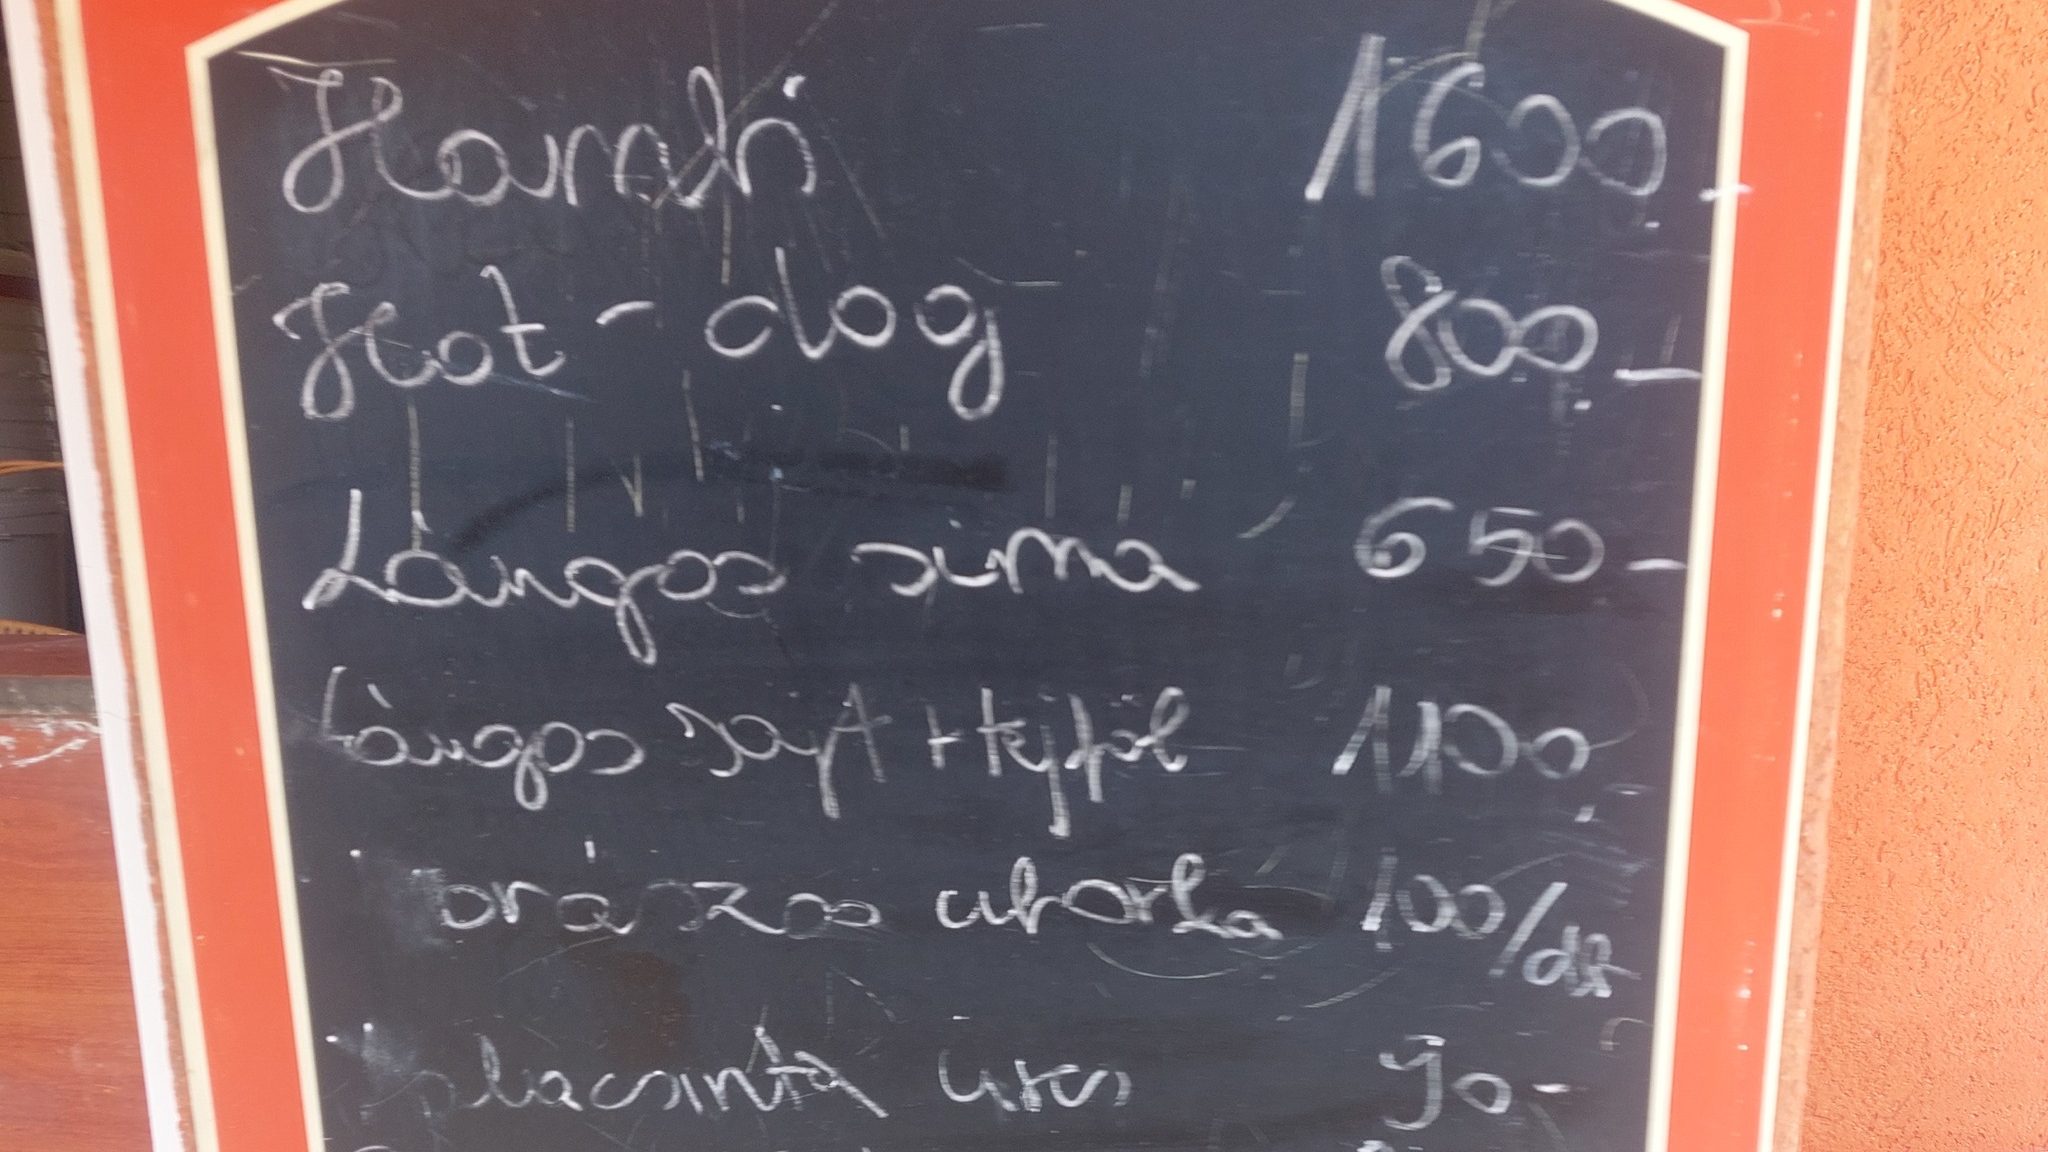 Hambi 1600.-
Hot-dog 800.-
Lángos sima 650-
Lángos sajt+tejföl 1100.-
orászos uborka 100/db
Palacsinta üres 90.-